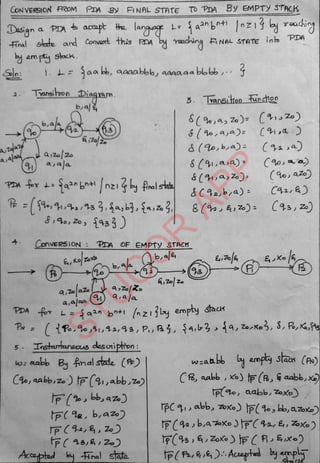 CONVERSION FROM PDA BY FINAL STATE TO PDA BY EMPTY STACK
Design a PDA to accept the language L = { a²ⁿ bⁿ⁺¹ | n ≥ 1 } by reaching
final state and convert this PDA by reaching FINAL STATE into PDA
by empty stack.
Soln: 1. L = { aabb, aaaabbb, aaaaaabbbb, .. }
2. Transition Diagram.
b, a/ε
b, a/a
q0 q2 q3
ε, z0/z0
a, z0/z0
a, a/a
q1
3. Transition Function
δ(q0, a, z0) = (q1, z0)
δ(q0, a, a) = (q1, a)
δ(q0, b, a) = (q2, a)
δ(q1, a, a) = (q0, aa)
δ(q1, a, z0) = (q0, az0)
δ(q2, b, a) = (q2, ε)
δ(q2, ε, z0) = (q3, z0)
PDA for L = { a²ⁿ bⁿ⁺¹ | n ≥ 1 } by final state
PF = ({q0, q1, q2, q3}, {a, b}, {a, z0},
δ, q0, z0, {q3})
4. CONVERSION : PDA OF EMPTY STACK
ε, x0/z0x0 b, a/a b, a/ε ε, z0/ε ε, x0/ε
P0 q0 q2 q3 P1 P2
ε, z0/z0
q1
PDA for L = { a²ⁿ bⁿ⁺¹ | n ≥ 1 } by empty stack
PN = ( {P0, q0, q1, q2, q3, P1, P2}, {a, b}, {a, z0, x0}, δ, P0, x0,
5. Instantaneous description:
w = aabb By final state (PF)
(q0, aabb, z0) ⊢ (q1, abb, z0)
⊢ (q0, bb, az0)
⊢ (q2, b, az0)
⊢ (q2, ε, z0)
⊢ (q3, ε, z0)
Accepted by final state
w = aabb by empty stack (PN)
(P0, aabb, x0) ⊢ (P0, ε aabb, x0)
⊢ (q0, aabb, z0x0)
⊢ (q1, abb, z0x0) ⊢ (q0, bb, az0x0)
⊢ (q2, b, az0x0) ⊢ (q2, ε, z0x0)
⊢ (q3, ε, z0x0) ⊢ (P1, ε, x0)
⊢ (P2, ε, ε) ∴ Accepted by empty stack